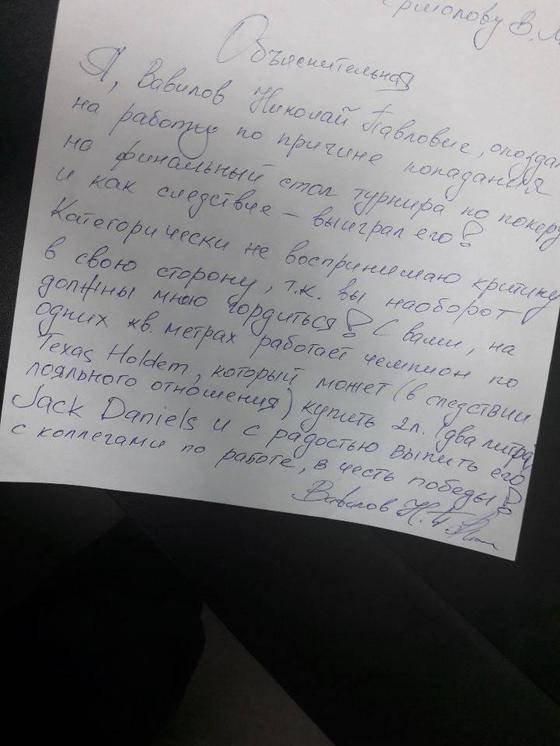 Ермолову В.М
Объяснительная
Я, Вавилов Николай Павлович, опоздал
на работу по причине попадания
на финальный стол турнира по покеру
и как следствие – выиграл его!
Категорически не воспринимаю критику
в свою сторону, т.к. вы наоборот
должны мною гордиться! С вами, на
одних кв. метрах работает чемпион по
Texas Holdem, который может (в следствии
лояльного отношения) купить 2л. (два литра)
Jack Daniels и с радостью выпить его
с коллегами по работе, в честь победы!
Вавилов Н.П.